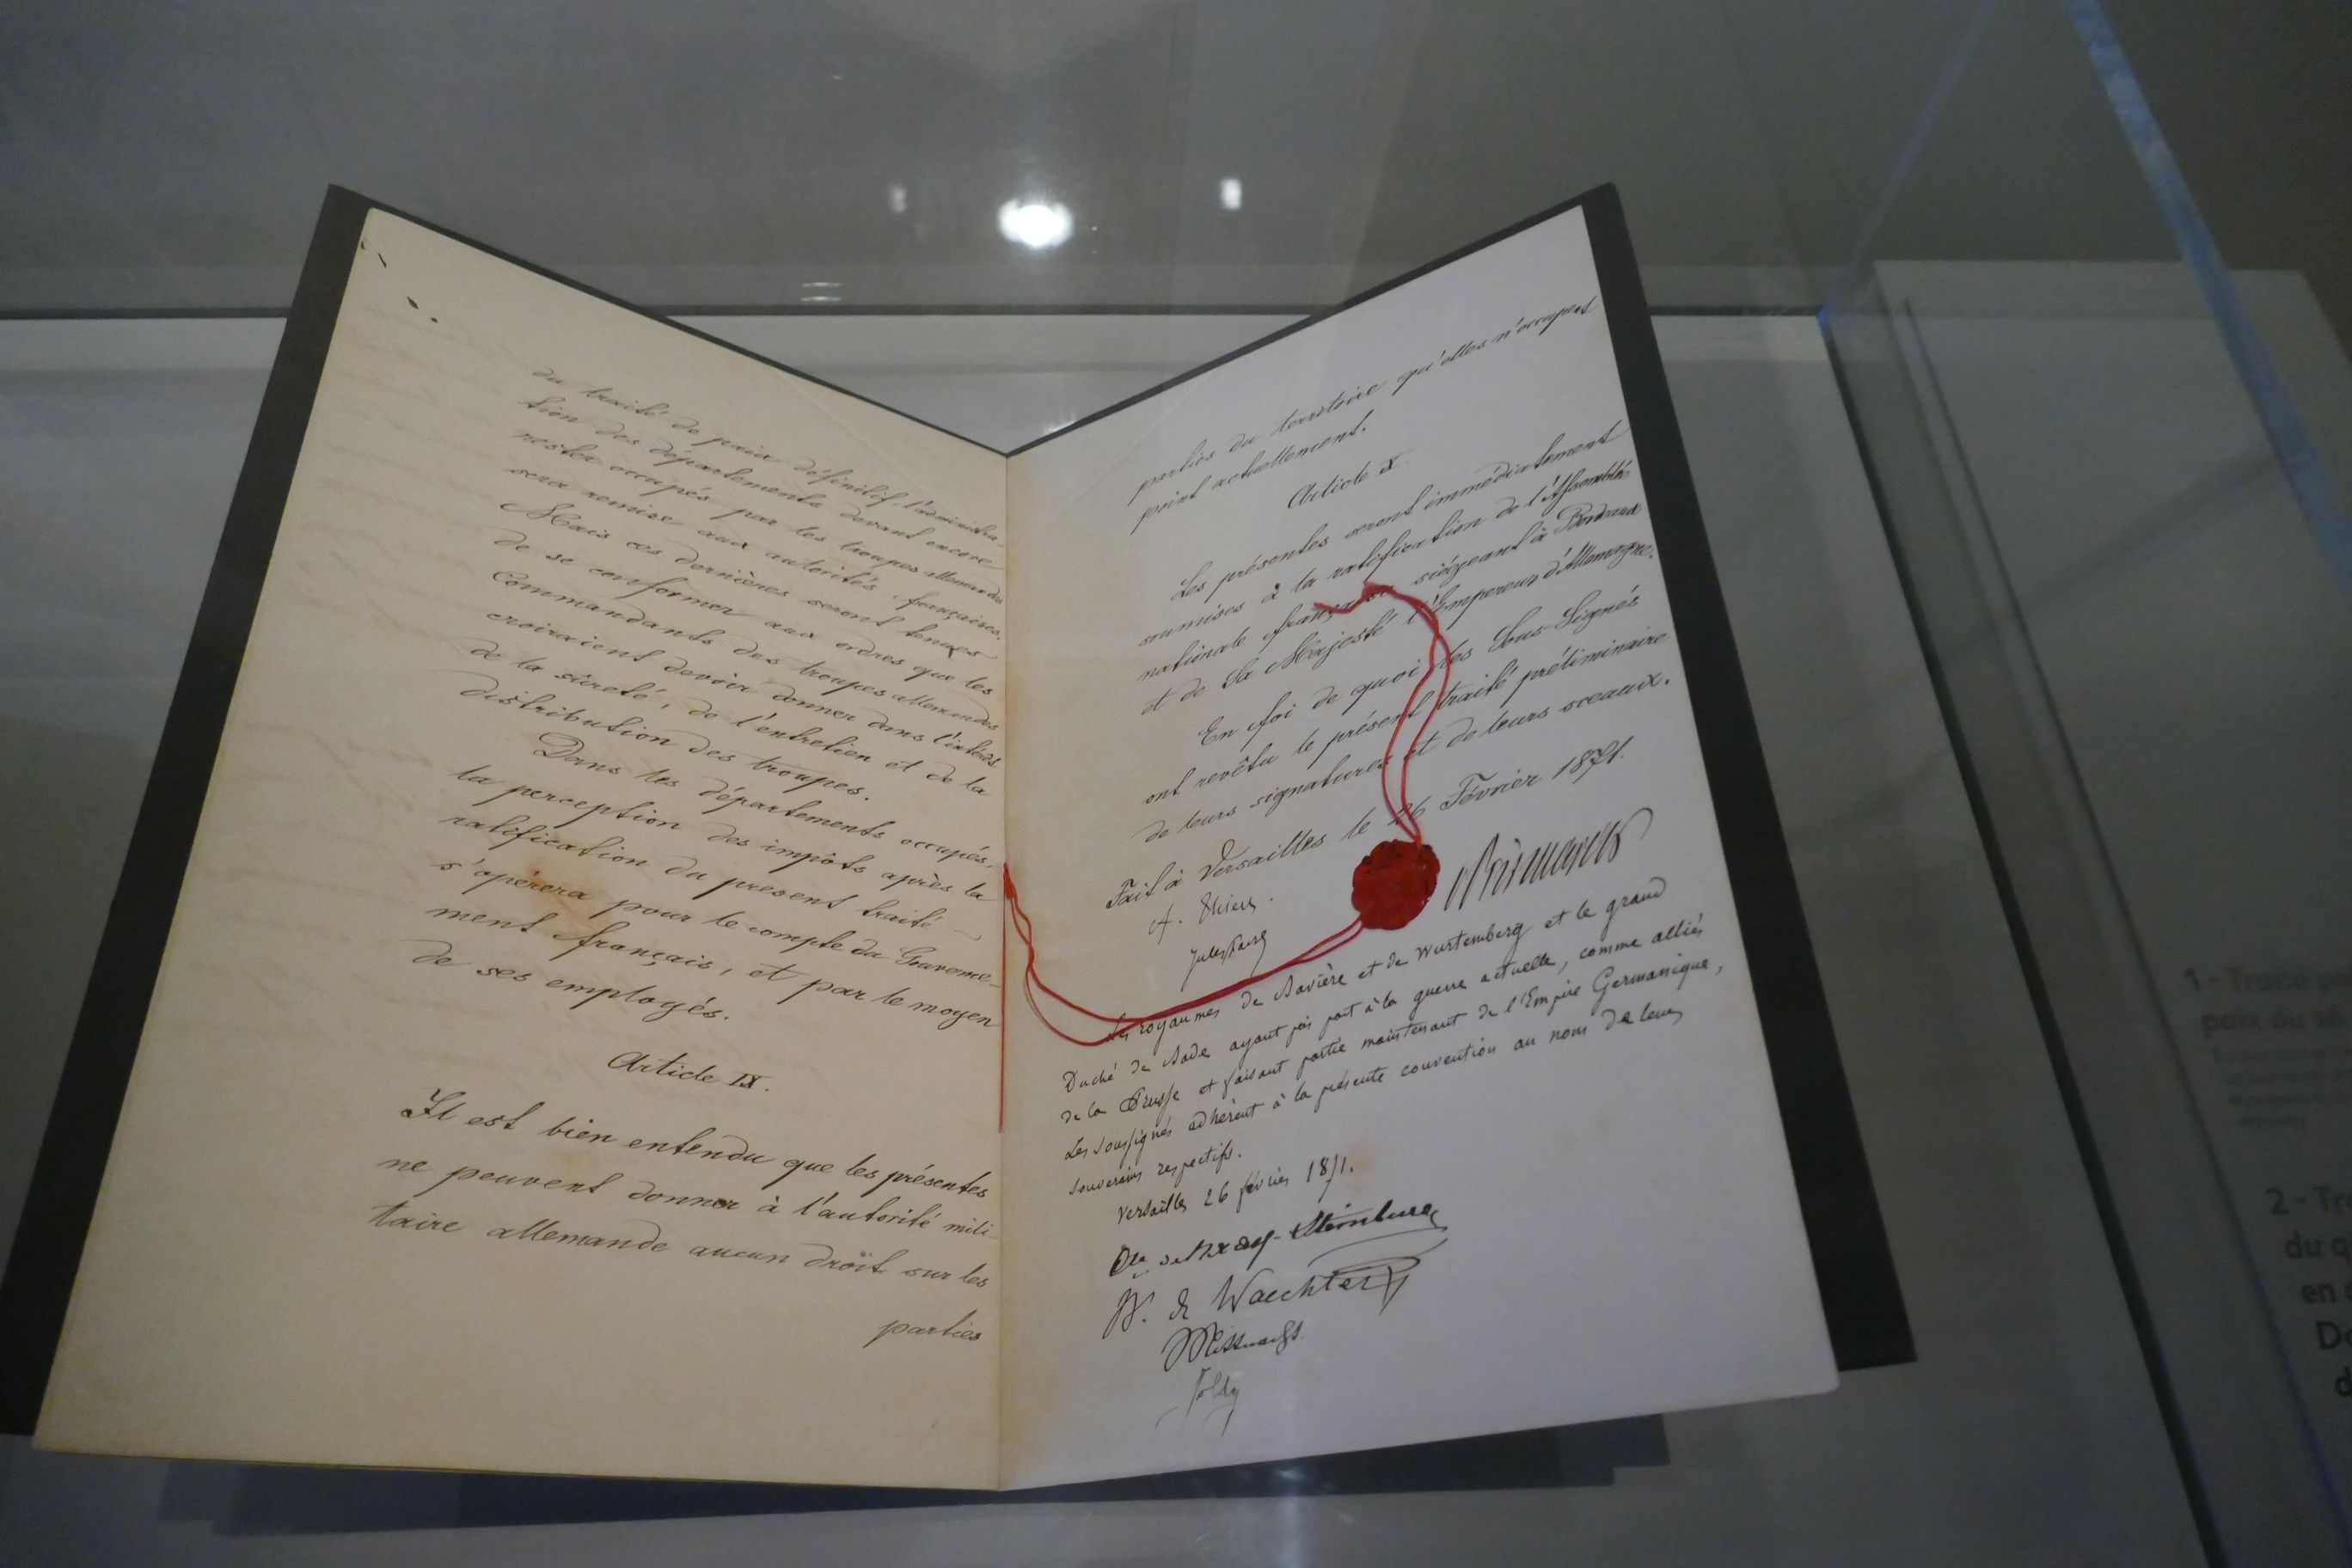 du traité de paix définitif, l'administra-
tion des départements devant encore
rester occupés par les troupes allemandes
sera remise aux autorités françaises.
Mais ces dernières seront tenues
de se conformer aux ordres que les
Commandants des troupes allemandes
croiraient devoir donner dans l'intérêt
de la sûreté, de l'entretien et de la
distribution des troupes.
Dans les départements occupés,
la perception des impôts après la
ratification du present traité
s'opérera pour le compte du Gouverne-
ment français, et par le moyen
de ses employés.
Article IX.
Il est bien entendu que les présentes
ne peuvent donner à l'autorité mili
taire allemande aucun droit sur les
parties
parties du territoire qu'elles n'occupent
point actuellement.
Article X.
Les présentes seront immédiatement
soumises à la ratification de l'Assemblée
nationale française siégeant à Bordeaux
et de Sa Majesté l'Empereur d'Allemagne.
En foi de quoi les Sous-Signés
ont revêtu le présent traité préliminaire
de leurs signatures et de leurs sceaux.
Fait à Versailles le 26 Février 1871.
A. Thiers.
Jules Favre
v Bismarck
Les royaumes de Bavière et de Wurtemberg et le grand
Duché de Bade ayant pris part à la guerre actuelle, comme alliés
de la Prusse et faisant partie maintenant de l'Empire Germanique,
les soussignés adhèrent à la présente convention au nom de leurs
souverains respectifs.
Versailles 26 février 1871.
Cte de Bray-Steinburg
B. de Waechter
Mittnacht
Jolly
1 -
2 -